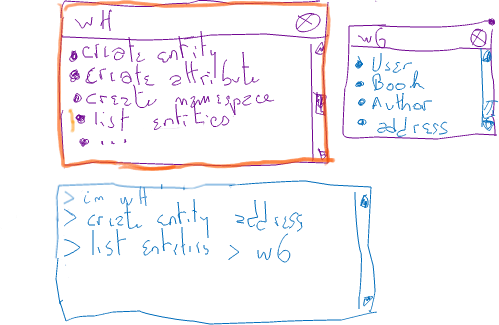 wH
create entity
create attribute
create namespace
list entities
...
w6
User
Book
Author
address
> im wH
> create entity address
> list entities > w6